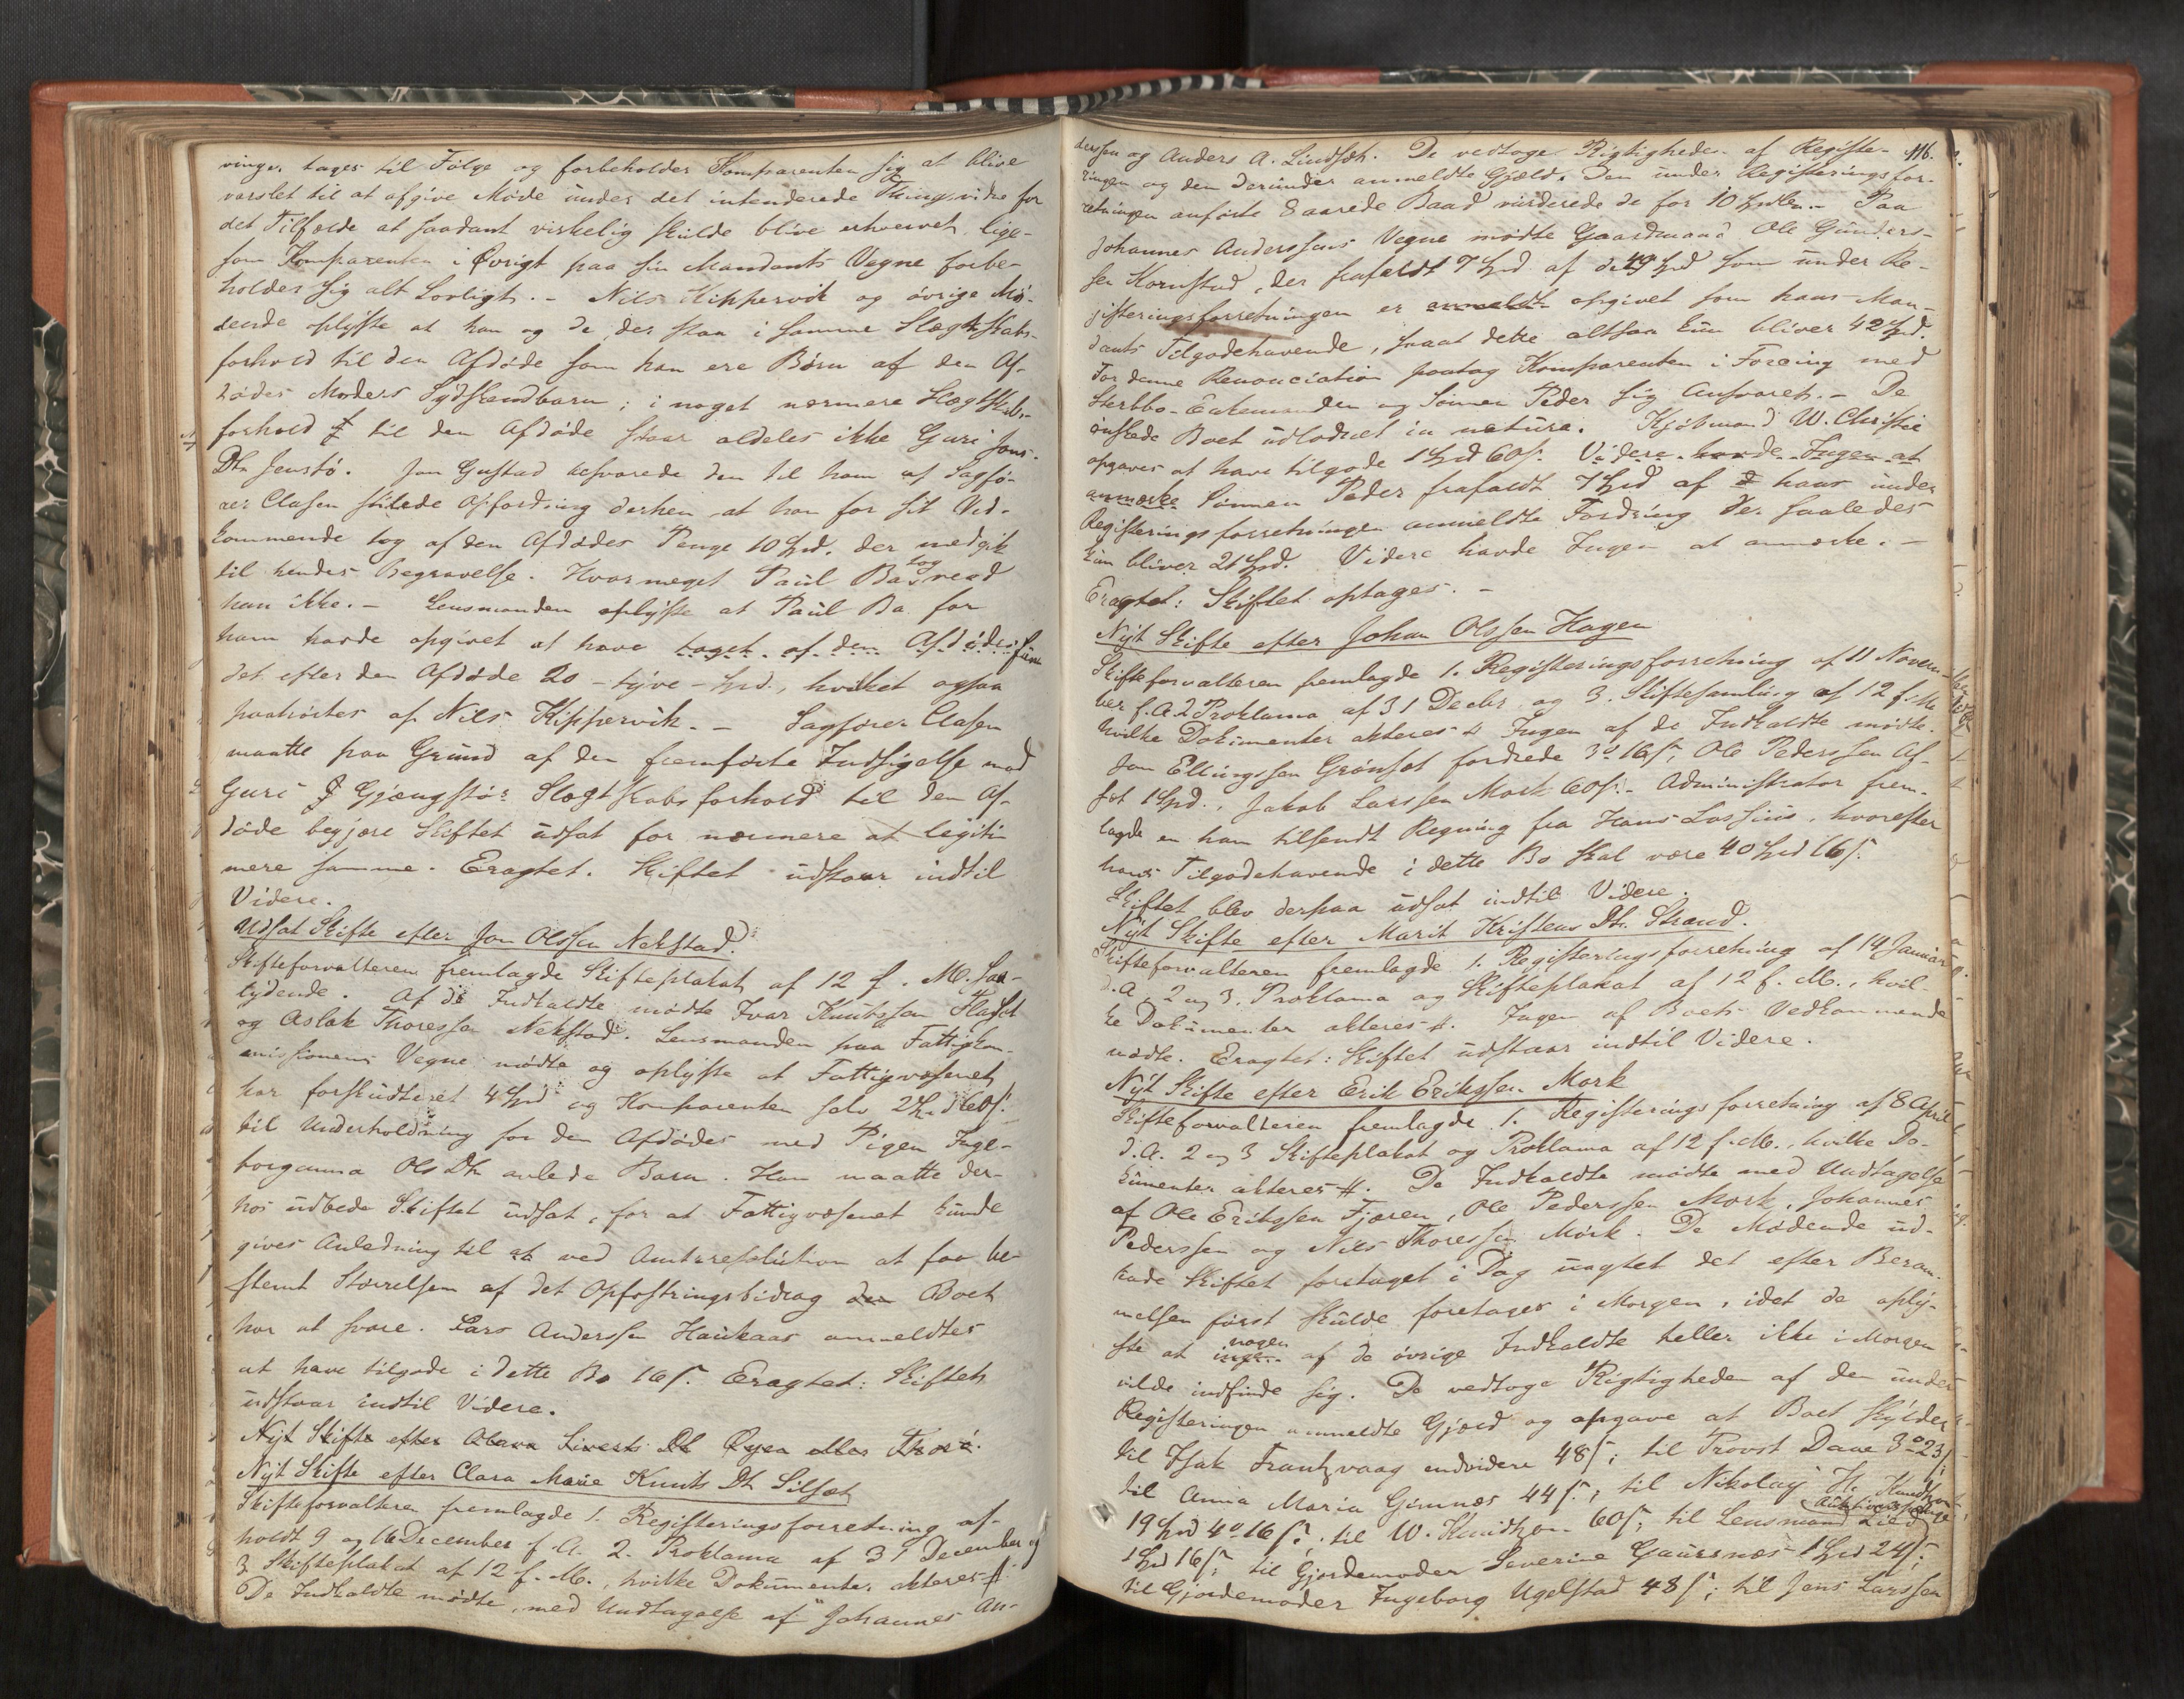 vinger tages til Følge og forbeholder Komparenten sig at blive
varslet til at afgive Møde under det intenderede Thingsvidne for
det Tilfælde at saadant virkelig skulde blive erhvervet, lige-
som Komparenten i Øvrigt paa sin Mandants Vegne forbe-
holder sig alt Lovligt. - Nils Kippervik og øvrige Mø-
dende oplyste at han og de, der staa i samme Slægtskabs-
forhold til den Afdøde som han ere Børn af den Af-
dødes Moders Sydskendbarn; i noget nærmere Slægtskabs-
forhold til den Afdøde staar aldeles ikke Guri Jons-
Dtr Jenstø. Jon Gustad besvarede den til ham af Sagfø-
rer Clasen stilede Opfordring derhen at han for sit Ved-
kommende tog af den Afdødes Penge 10 Spd. der medgik
til hendes Begravelse. Hvormeget Paul Ba tog veed
han ikke. - Lensmanden oplyste at Paul Ba for
ham havde opgivet at have taget af den Afdødes
det efter den Afdøde 20 - tyve - Spd., hvilket ogsaa
paahørtes af Nils Kippervik. - Sagfører Clasen
maatte paa Grund af den fremførte Indsigelse mod
Guri Gjængstøs Slægtskabsforhold til den Af-
døde begjære Skiftet udsat for nærmere at legiti-
mere samme. Eragtet. Skiftet udstaar indtil
Videre.
Udsat Skifte efter Jon Olssen Nekstad.
Skifteforvalteren fremlagde Skifteplakat af 12 f. M. Saa-
lydende. Af de Indkaldte mødte Ivar Knutssen Sladset
og Aslak Thoressen Nekstad. Lensmanden paa Fattigkom-
missionens Vegne mødte og oplyste at Fattigvæsenet
har forskudteret 4 Spd og Komparenten selv 2 Spd 60 s.
til Underholdning for den Afdødes med Pigen Inge-
borganna Ols Dtr avlede Barn. Han maatte der-
hos udbede Skiftet udsat, for at Fattigvæsenet kunde
gives Anledning til at ved Amtsresolution at faa be-
stemt Størrelsen af det Opfostringsbidrag den Boet
har at svare. Lars Anderssen Haukaas anmeldtes
at have tilgode i dette Bo 16 s. Eragtet: Skiftet
udstaar indtil Videre.
Nyt Skifte efter Siverts Dtr Øyen
Nyt Skifte efter Clara Marie Knuts Dtr Silset
Skifteforvalteren fremlagde 1. Registeringsforretning af-
holdt 9 og 16 December f. A. 2. Proklama af 31 December og
3 Skifteplakat af 12 f. M., hvilke Dokumenter akteres #
De Indkaldte mødte, med Undtagelse af Johannes An-
116.
derssen og Anders A. Lindset. De vedtoge Rigtigheden af Registe-
ringen og den derunder anmeldte Gjæld. Den under Registeringsfor-
retningen anførte 8aarede Baad vurderede de for 10 Spdlr. - Paa
Johannes Anderssens Vegne mødte Gaardmand Ole Gunders-
sen Kornstad, der frafaldt 7 Spd af de 49 Spd som under Re-
gisteringsforretningen er anmeldt opgivet som hans Man-
dants Tilgodehavende, saaat dette altsaa kun bliver 42 Spd.
For denne Renonciation paatog Komparenten i Forening med
Sterbbo-Enkemanden og Sønnen Peder sig Ansvaret. - De
ønskede Boet udlodnet in natura. Kjøbmand W. Christie
opgaves at have tilgode 1 Spd 60 s. Videre havde Ingen at
anmærke Sønnen Peder frafaldt 7 Spd af hans under
Registeringsforretningen anmeldte Fordring der saaledes
kun bliver 21 Spd. Videre havde Ingen at anmærke. -
Eragtet: Skiftet optages. -
Nyt Skifte efter Johan Olssen Hagen
Skifteforvalteren fremlagde 1. Registeringsforretning af 11 Novem-
ber f. A. 2 Proklama af 31 Decbr og 3. Skiftesamling af 12 f. M.
hvilke Dokumenter akteres # Ingen af de Indkaldte mødte.
Jon Ellingssen Grønset fordrede 3 o 16 s, Ole Pederssen Af-
set 1 Spd., Jakob Larssen Mork 60 s. - Administrator frem-
lagde en ham tilsendt Regning fra Hans Lossius, hvorefter
hans Tilgodehavende i dette Bo skal være 40 Spd 16 s.
Skiftet blev derpaa udsat indtil Videre.
Nyt Skifte efter Marit Kristens Dtr. Strand.
Skifteforvalteren fremlagde 1. Registeringsforretning af 14 Januar
d. A., 2 og 3. Proklama og Skifteplakat af 12 f. M., hvil-
ke Dokumenter akteres #. Ingen af Boets Vedkommende
mødte. Eragtet: Skiftet udstaar indtil Videre.
Nyt Skifte efter Erik Erikssen Mork
Skifteforvalteren fremlagde 1. Registeringsforretning af 8 April
d. A. 2 og 3 Skifteplakat og Proklama af 12 f. M., hvilke Do-
kumenter akteres #. De Indkaldte mødte med Undtagelse
af Ole Erikssen Fjæren, Ole Pederssen Mork, Johannes
Pederssen og Nils Thoressen Mork. De Mødende ud-
bade Skiftet foretaget i Dag uagtet det efter Beram-
melsen først skulde foretages i Morgen, idet de oply-
ste at ingen nogen af de øvrige Indkaldte heller ikke i Morgen
vilde indfinde sig. De vedtoge Rigtigheden af den under
Registeringen anmeldte Gjæld og opgave at Boet skylder
til Isak Frantzvaag endvidere 48 s; til Provst Daae 3 o 23 s;
til Anna Maria Gimnæs 44 s.; til Nikolay H. Knudtzon
19 Spd 4 o 16 s; til W. Knudtzon 60 s; til Lensmand Lied Auktionspenge
1 Spd 16 s; til Gjordemoder Severine Gaursnæs 1 Spd 24 s;
til Gjordemoder Ingeborg Ugelstad 48 s; til Jens Larssen